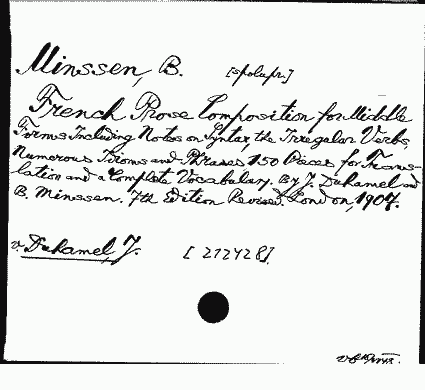 Minssen, B. [spółupr.]
French Prose Composition for Middle
Forms Including Notes on Syntax, the Irregular Verbs,
Numerous Idioms and Phrases 150 Pieces for Trans-
lation and a Complete Vocabulary. By J. Duhamel and
B. Minssen. 7th Edition Revised. London, 1907.
v. Duhamel, J. [212428].